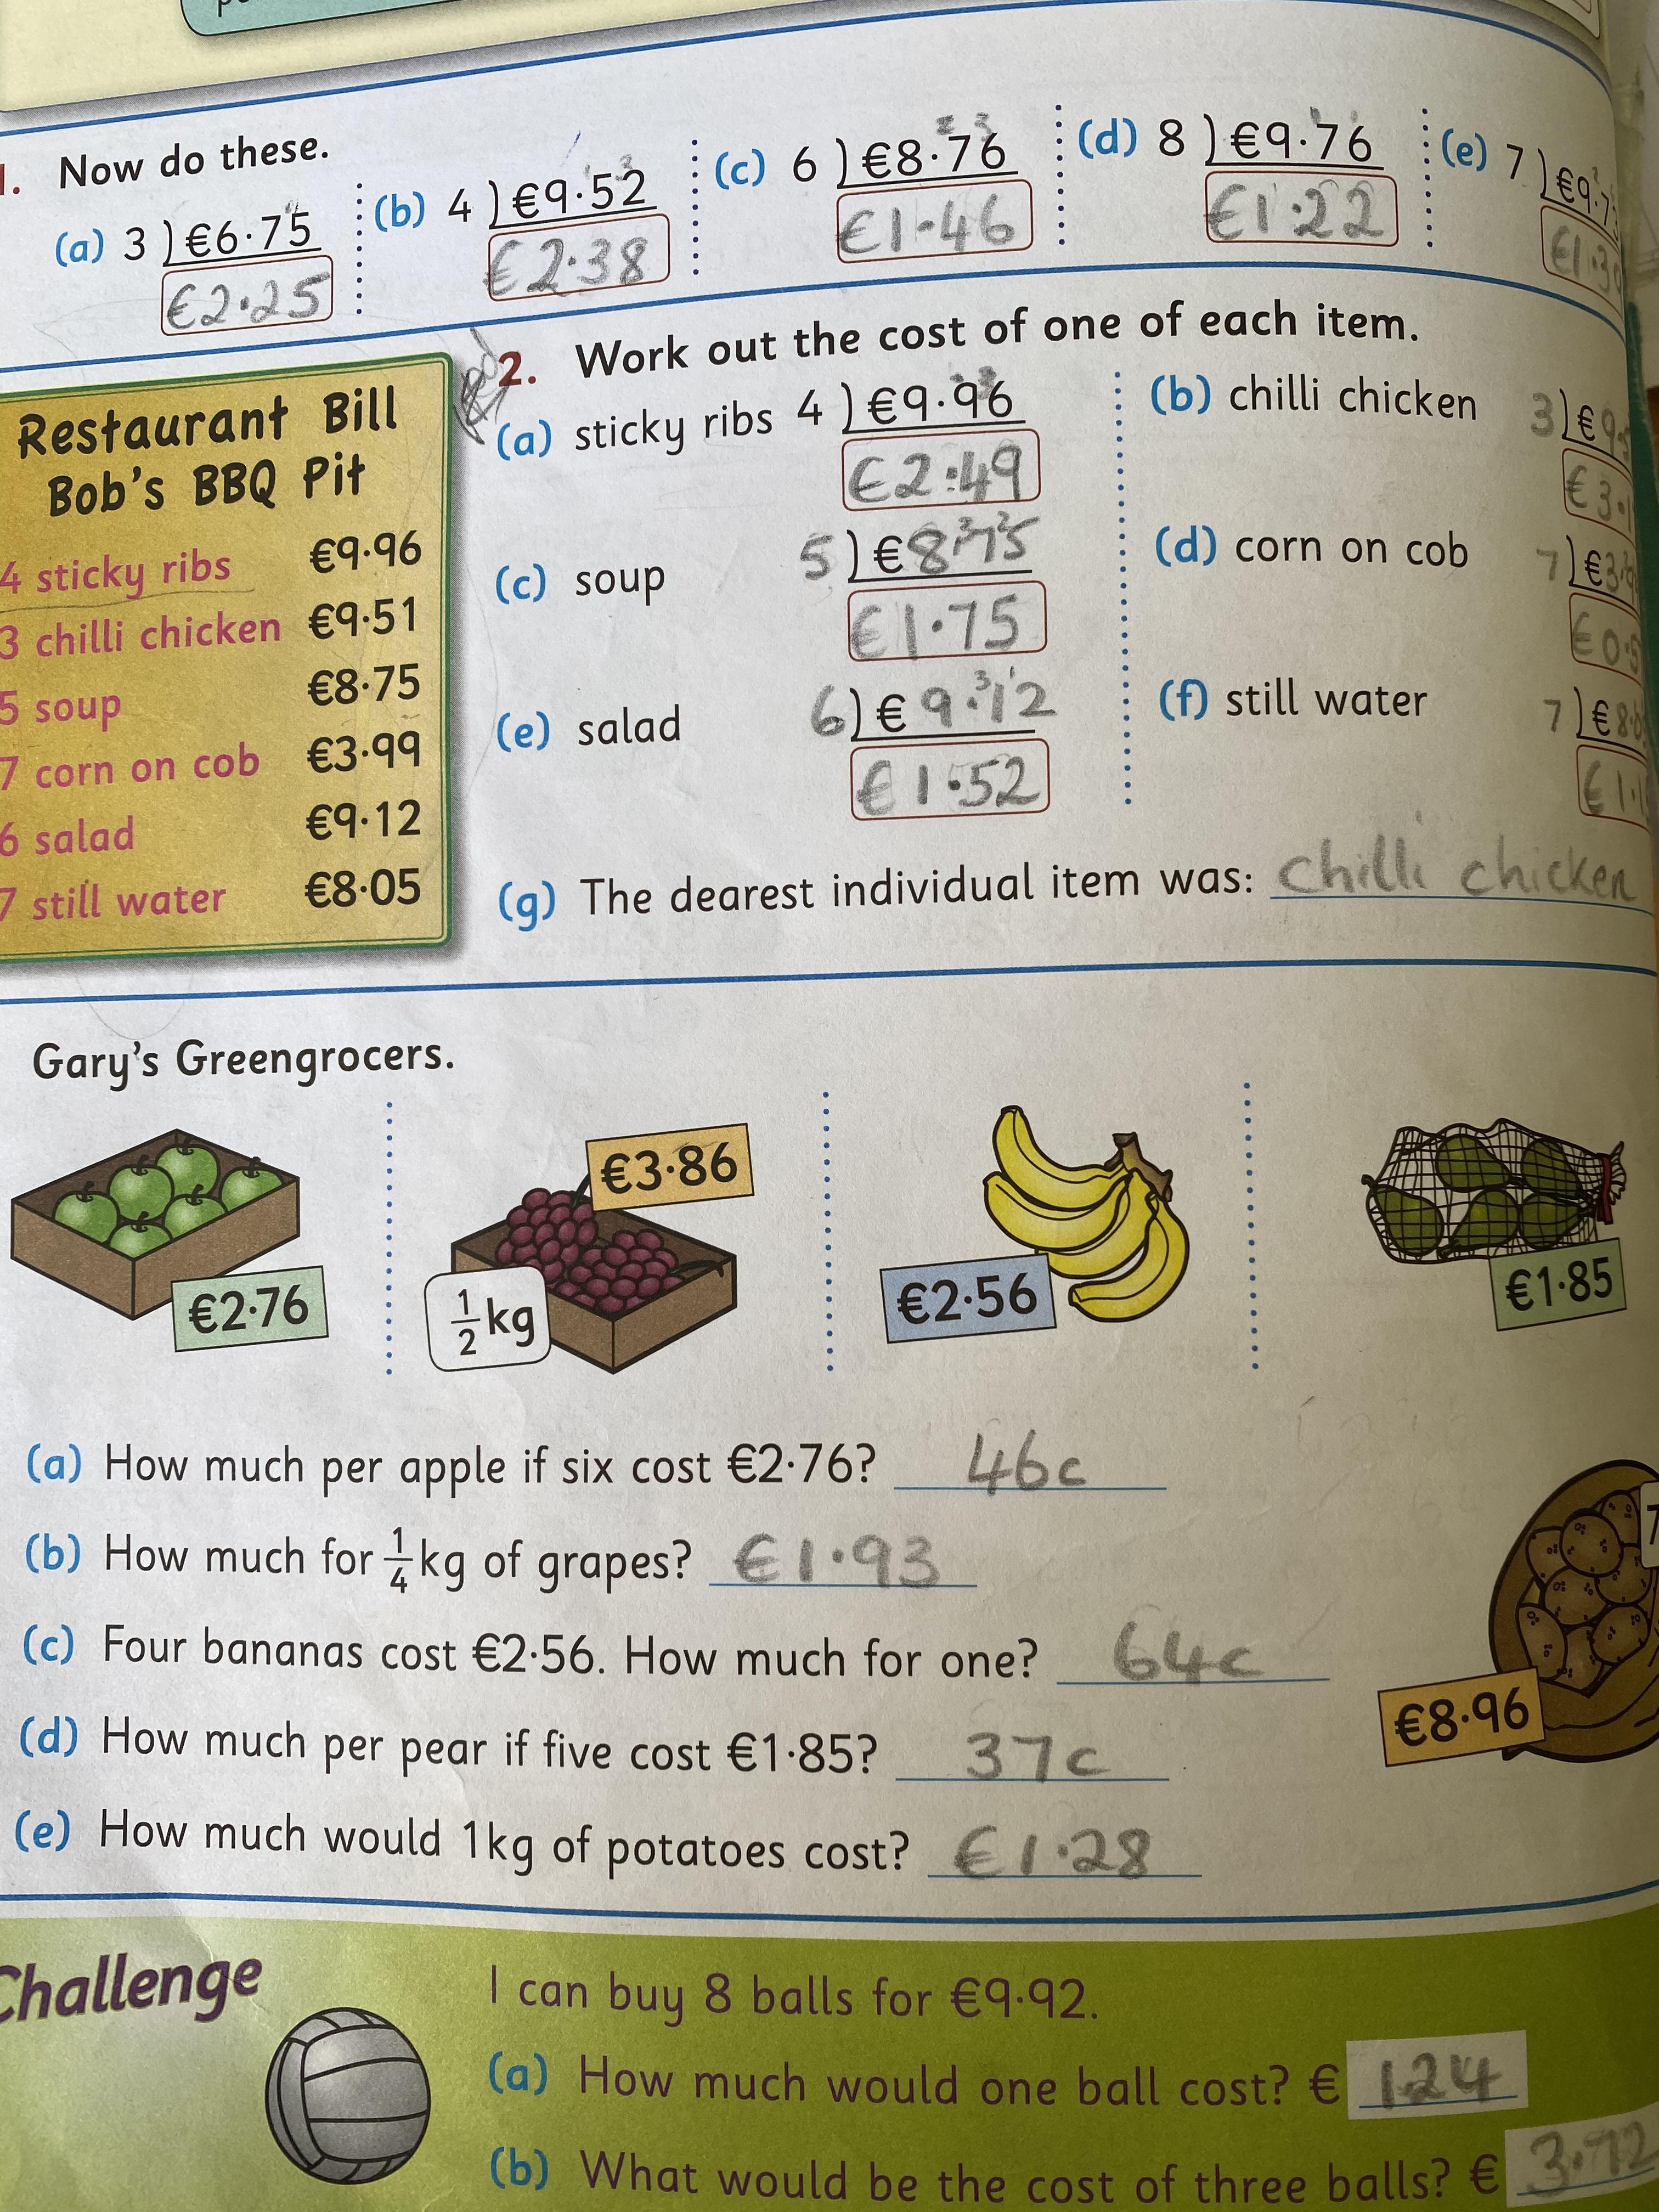 1. Now do these.
(a) 3 ) €6·75
€2·25
(b) 4 ) €9·52
€2·38
(c) 6 ) €8·76
€1·46
(d) 8 ) €9·76
€1·22
(e) 7 ) €9·7
€1·3
Restaurant Bill
Bob's BBQ Pit
4 sticky ribs €9·96
3 chilli chicken €9·51
5 soup €8·75
7 corn on cob €3·99
6 salad €9·12
7 still water €8·05
2. Work out the cost of one of each item.
(a) sticky ribs 4 ) €9·96
€2·49
(b) chilli chicken 3 ) €9
€3·1
(c) soup 5 ) €8·75
€1·75
(d) corn on cob 7 ) €3
€0·5
(e) salad 6 ) €9·12
€1·52
(f) still water 7 ) €8
€1·1
(g) The dearest individual item was: chilli chicken
Gary's Greengrocers.
€2·76
€3·86
1/2 kg
€2·56
€1·85
(a) How much per apple if six cost €2·76? 46c
(b) How much for 1/4 kg of grapes? €1·93
(c) Four bananas cost €2·56. How much for one? 64c
(d) How much per pear if five cost €1·85? 37c
7
€8·96
(e) How much would 1kg of potatoes cost? €1·28
Challenge
I can buy 8 balls for €9·92.
(a) How much would one ball cost? € 1.24
(b) What would be the cost of three balls? € 3.72